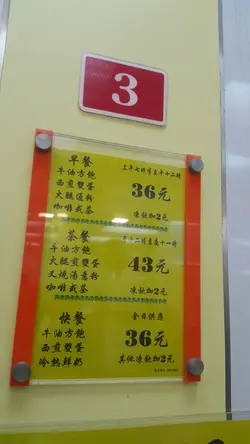 3
早餐
上午七時有至午十二時
牛油方飽
西煎雙蛋
火腿通粉
咖啡或茶
36元
凍飲加2元
茶餐
牛油方飽
火腿煎雙蛋
叉燒湯意粉
咖啡或茶
43元
凍飲加2元
快餐
全日供應
牛油方飽
西煎雙蛋
冷熱鮮奶
36元
其他凍飲加2元